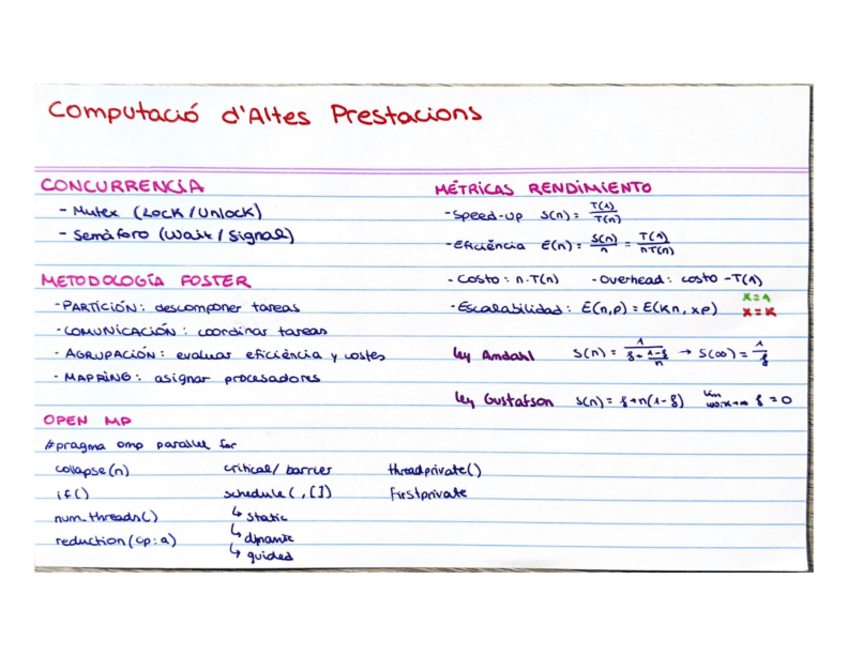 Computació d'Altes Prestacions
CONCURRENCIA
- Mutex (Lock/Unlock)
- Semàforo (Wait/Signal)
METODOLOGÍA FOSTER
- PARTICIÓN: descomponer tareas
- COMUNICACIÓN: coordinar tareas
- AGRUPACIÓN: evaluar eficiència y costes
- MAPPING: asignar procesadores
OPEN MP
#pragma omp parallel for
collapse(n) critical/barrier threadprivate()
if() schedule( ,[]) Firstprivate
num_threads() ↳ static
reduction(op:a) ↳ dynamic
↳ guided
MÉTRICAS RENDIMIENTO
- Speed-up S(n) = T(1)/T(n)
- Eficiència E(n) = S(n)/n = T(1)/nT(n)
- Costo = n·T(n) - Overhead: costo - T(1)
- Escalabilidad: E(n,p) = E(Kn, xp) x=1
x=K
Ley Amdahl S(n) = 1/(f + (1-f)/n) → S(∞) = 1/f
Ley Gustafson S(n) = f+n(1-f) f=0